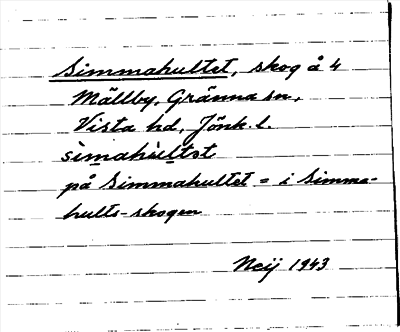 Simmahultet, skog å 4
Mällby, Gränna sn,
Vista hd, Jönk. l.
sìmahùltət
på Simmahultet = i Simma-
hults-skogen
Neij 1943